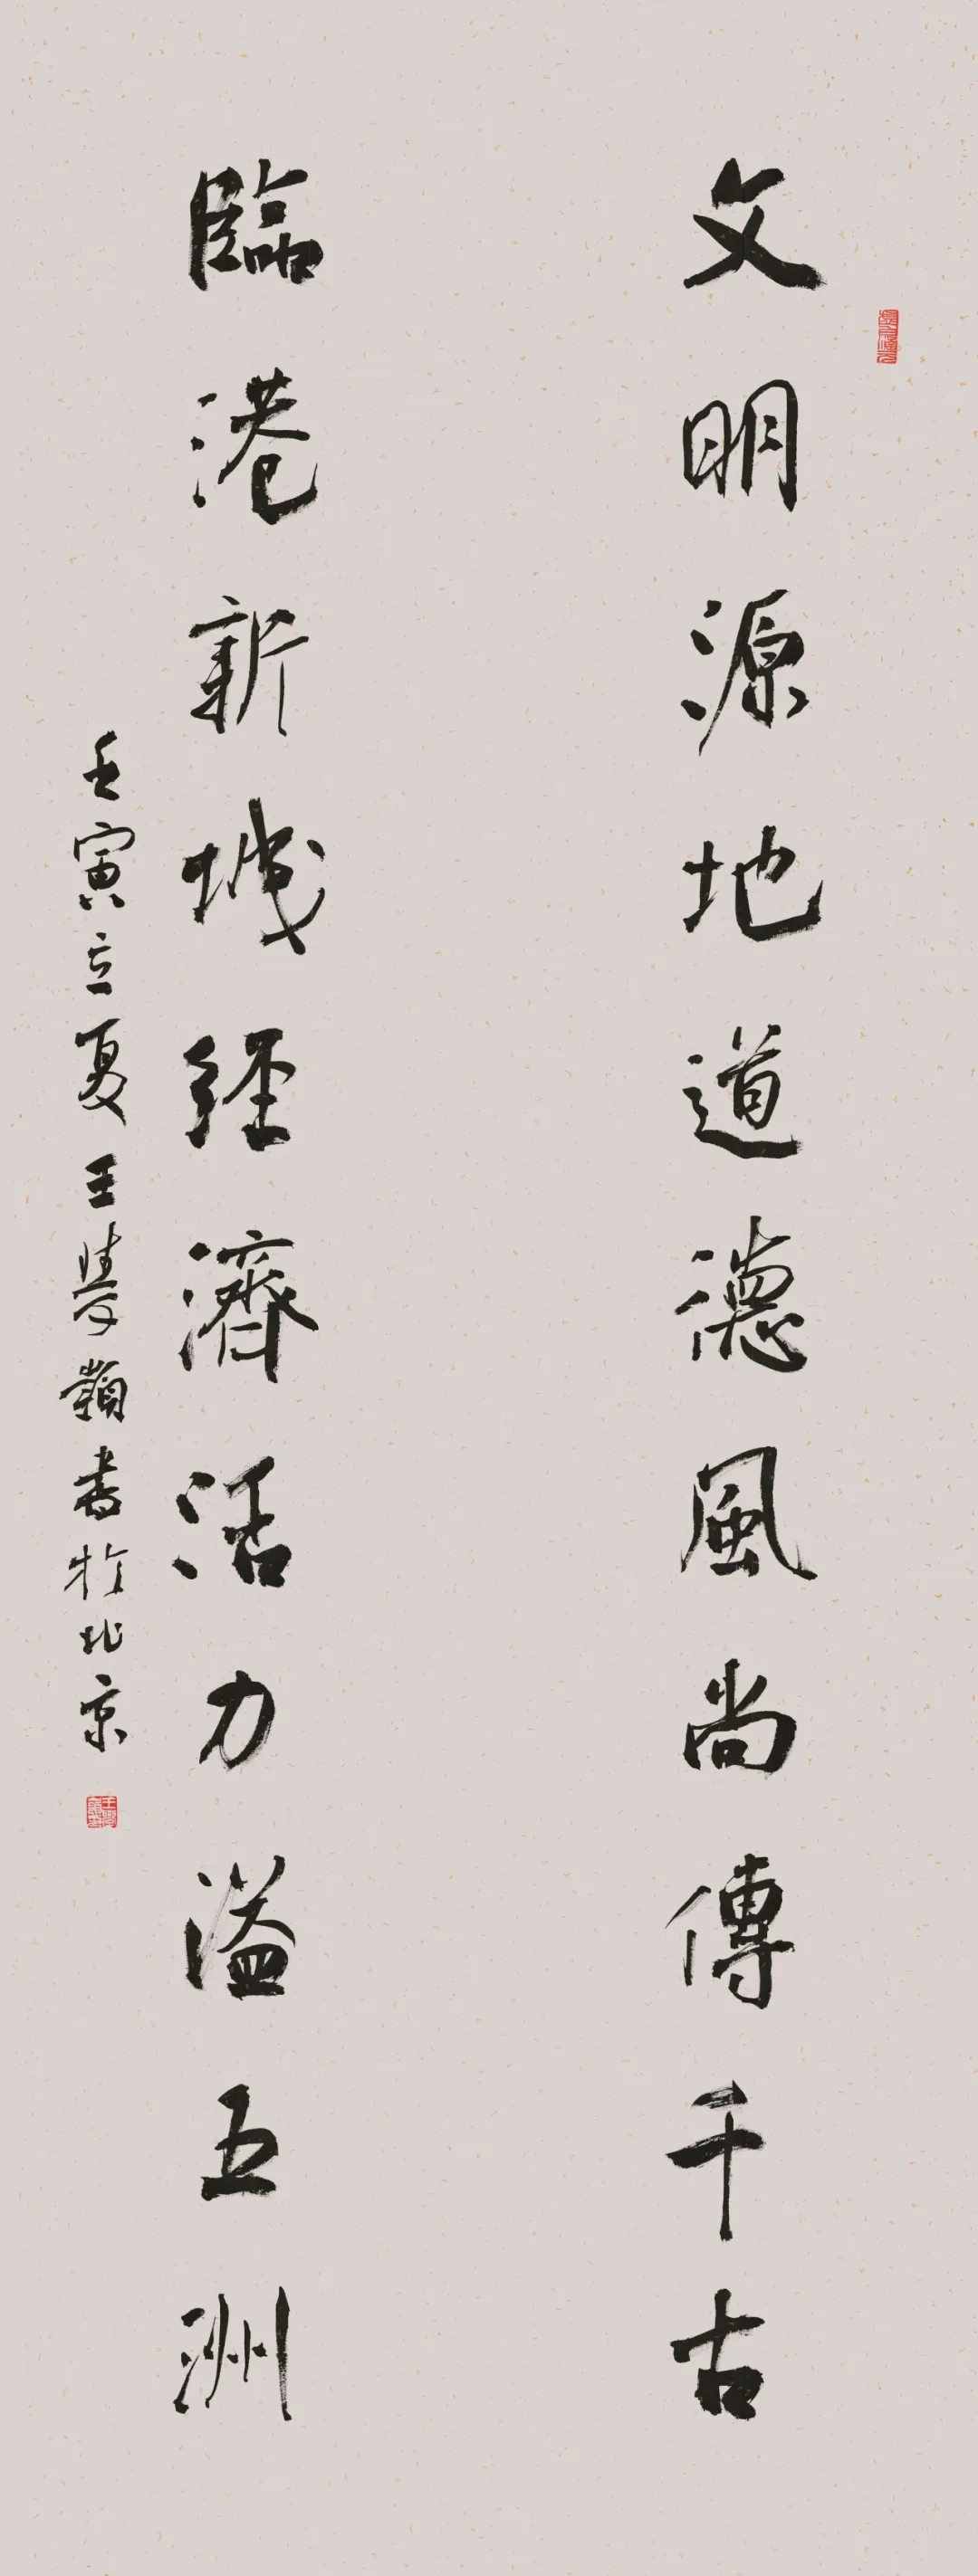 文明源地道德風尚傳千古
臨港新城經濟活力溢五洲
壬寅立夏王學嶺書於北京